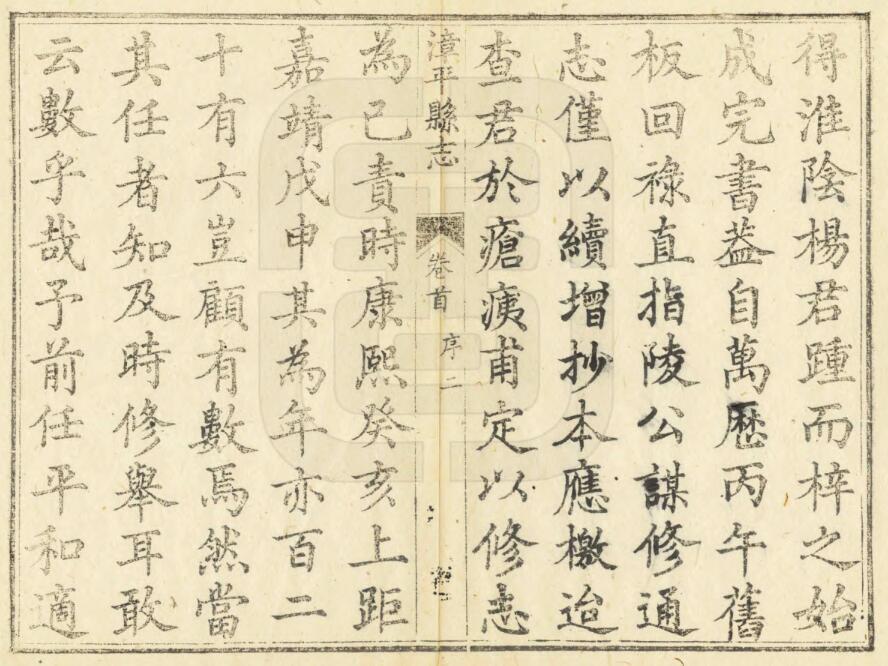 得淮陰楊君踵而梓之始
成完書葢自萬歷丙午舊
板回祿直指陵公謀修通
志僅以續增抄本應檄迨
查君於瘡痍甫定以修志
漳平縣志 卷首 序 二
為已責時康熙癸亥上距
嘉靖戊申其為年亦百二
十有六豈顧有數焉然當
其任者知及時修舉耳敢
云數乎哉予前任平和適